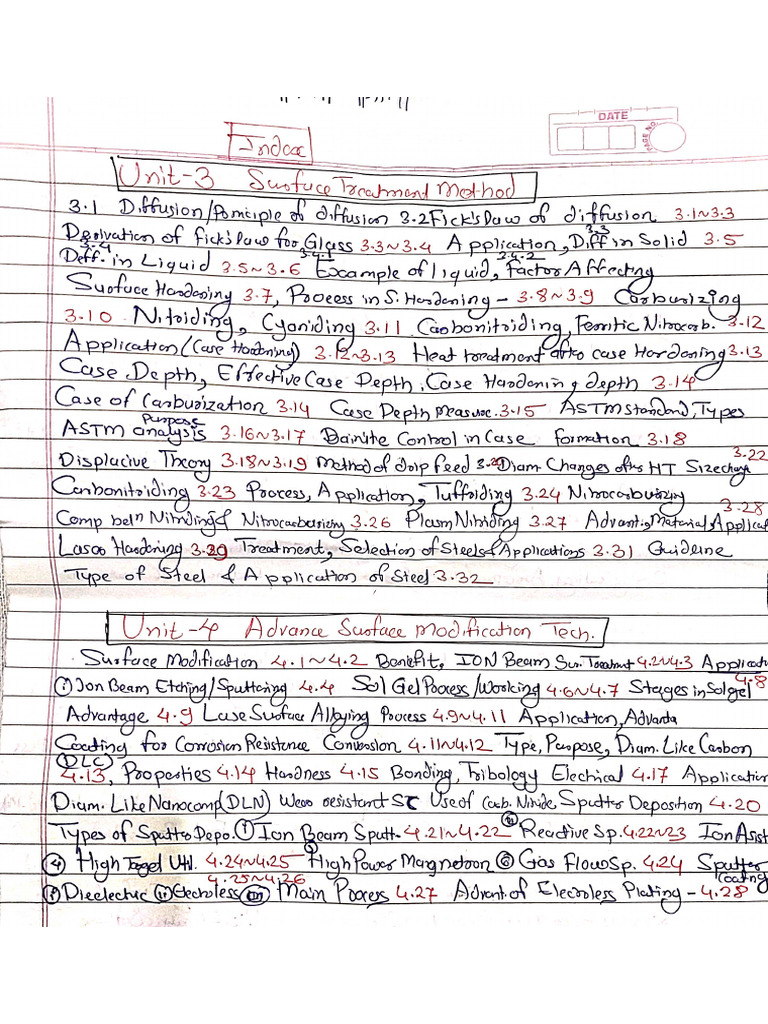 DATE
PAGE NO.
Index
Unit-3 Surface Treatment Method
3.1 Diffusion/Principle of diffusion 3.2 Fick's Law of diffusion 3.1~3.3
Derivation of fick's Law for Glass 3.3~3.4 Application, 3.3 Diff in Solid 3.5
3.4 Deff. in Liquid 3.5~3.6 3.4.1 Example of liquid, 3.4.2 Factor Affecting
Surface Hardening 3.7, Process in S. Hardening - 3.8~3.9 Carburizing
3.10 Nitriding, Cyaniding 3.11 Carbonitriding, Ferritic Nitrocarb. 3.12
Application (Case Hardening) 3.12~3.13 Heat treatment after case Hardening 3.13
Case Depth, Effective Case Depth, Case Hardening depth 3.14
Case of Carburization 3.14 Case Depth Measure. 3.15 ASTM standard, Types
ASTM Purpose analysis 3.16~3.17 Bainite Control in Case formation 3.18
Displacive Theory 3.18~3.19 Method of drip feed 3.20 Diam Changes after HT Size change 3.22
Carbonitriding 3.23 Process, Application, Tuffriding 3.24 Nitrocarburizing
Comp betn Nitriding & Nitrocarburizing 3.26 Plasm Nitriding 3.27 Advant., Material, Applicat 3.28
Laser Hardening 3.29 Treatment, Selection of Steels & Applications 3.31 Guideline
Type of Steel & Application of Steel 3.32
Unit-4 Advance Surface Modification Tech.
Surface Modification 4.1~4.2 Benefit, ION Beam Sur. Treatment 4.2~4.3 Applicat
(i) Ion Beam Etching/Sputtering 4.4 Sol Gel Process/Working 4.6~4.7 Stages in Solgel 4.8
Advantage 4.9 Lase Surface Alloying Process 4.9~4.11 Application, Advanta
Coating for Corrosion Resistence Conversion 4.11~4.12 Type, Purpose, Diam. Like Carbon
(DLC) 4.13, Properties 4.14 Hardness 4.15 Bonding, Tribology Electrical 4.17 Application
Diam. Like Nanocomp (DLN) Wear resistant Use of Carb. Nitride, Sputter Deposition 4.20
Types of Sputter Depo. (i) Ion Beam Sputt. 4.21~4.22 (ii) Reactive Sp. 4.22~23 Ion Asist
(4) High Taget Util. 4.24~4.25 (5) High Power Magnetron (6) Gas Flow Sp. 4.24 Sputter Coating
4.25~4.26
(i) Dielectric (ii) Electroless (iii) Main Process 4.27 Advant. of Elecroless Plating - 4.28